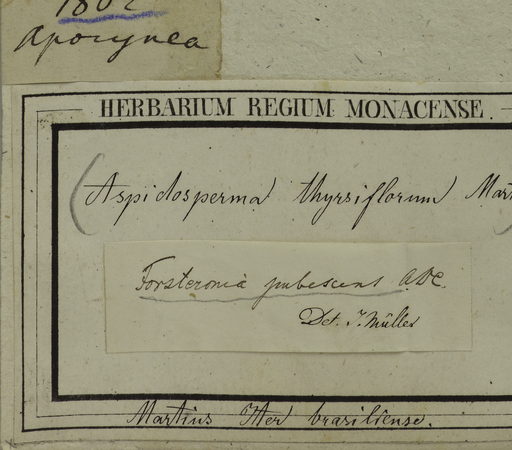 1802
Apocynea
HERBARIUM REGIUM MONACENSE.
(Aspidosperma thyrsiflorum Mart
Forsteronia pubescens A.DC.
Det. J. Müller
Martius Iter brasiliense.